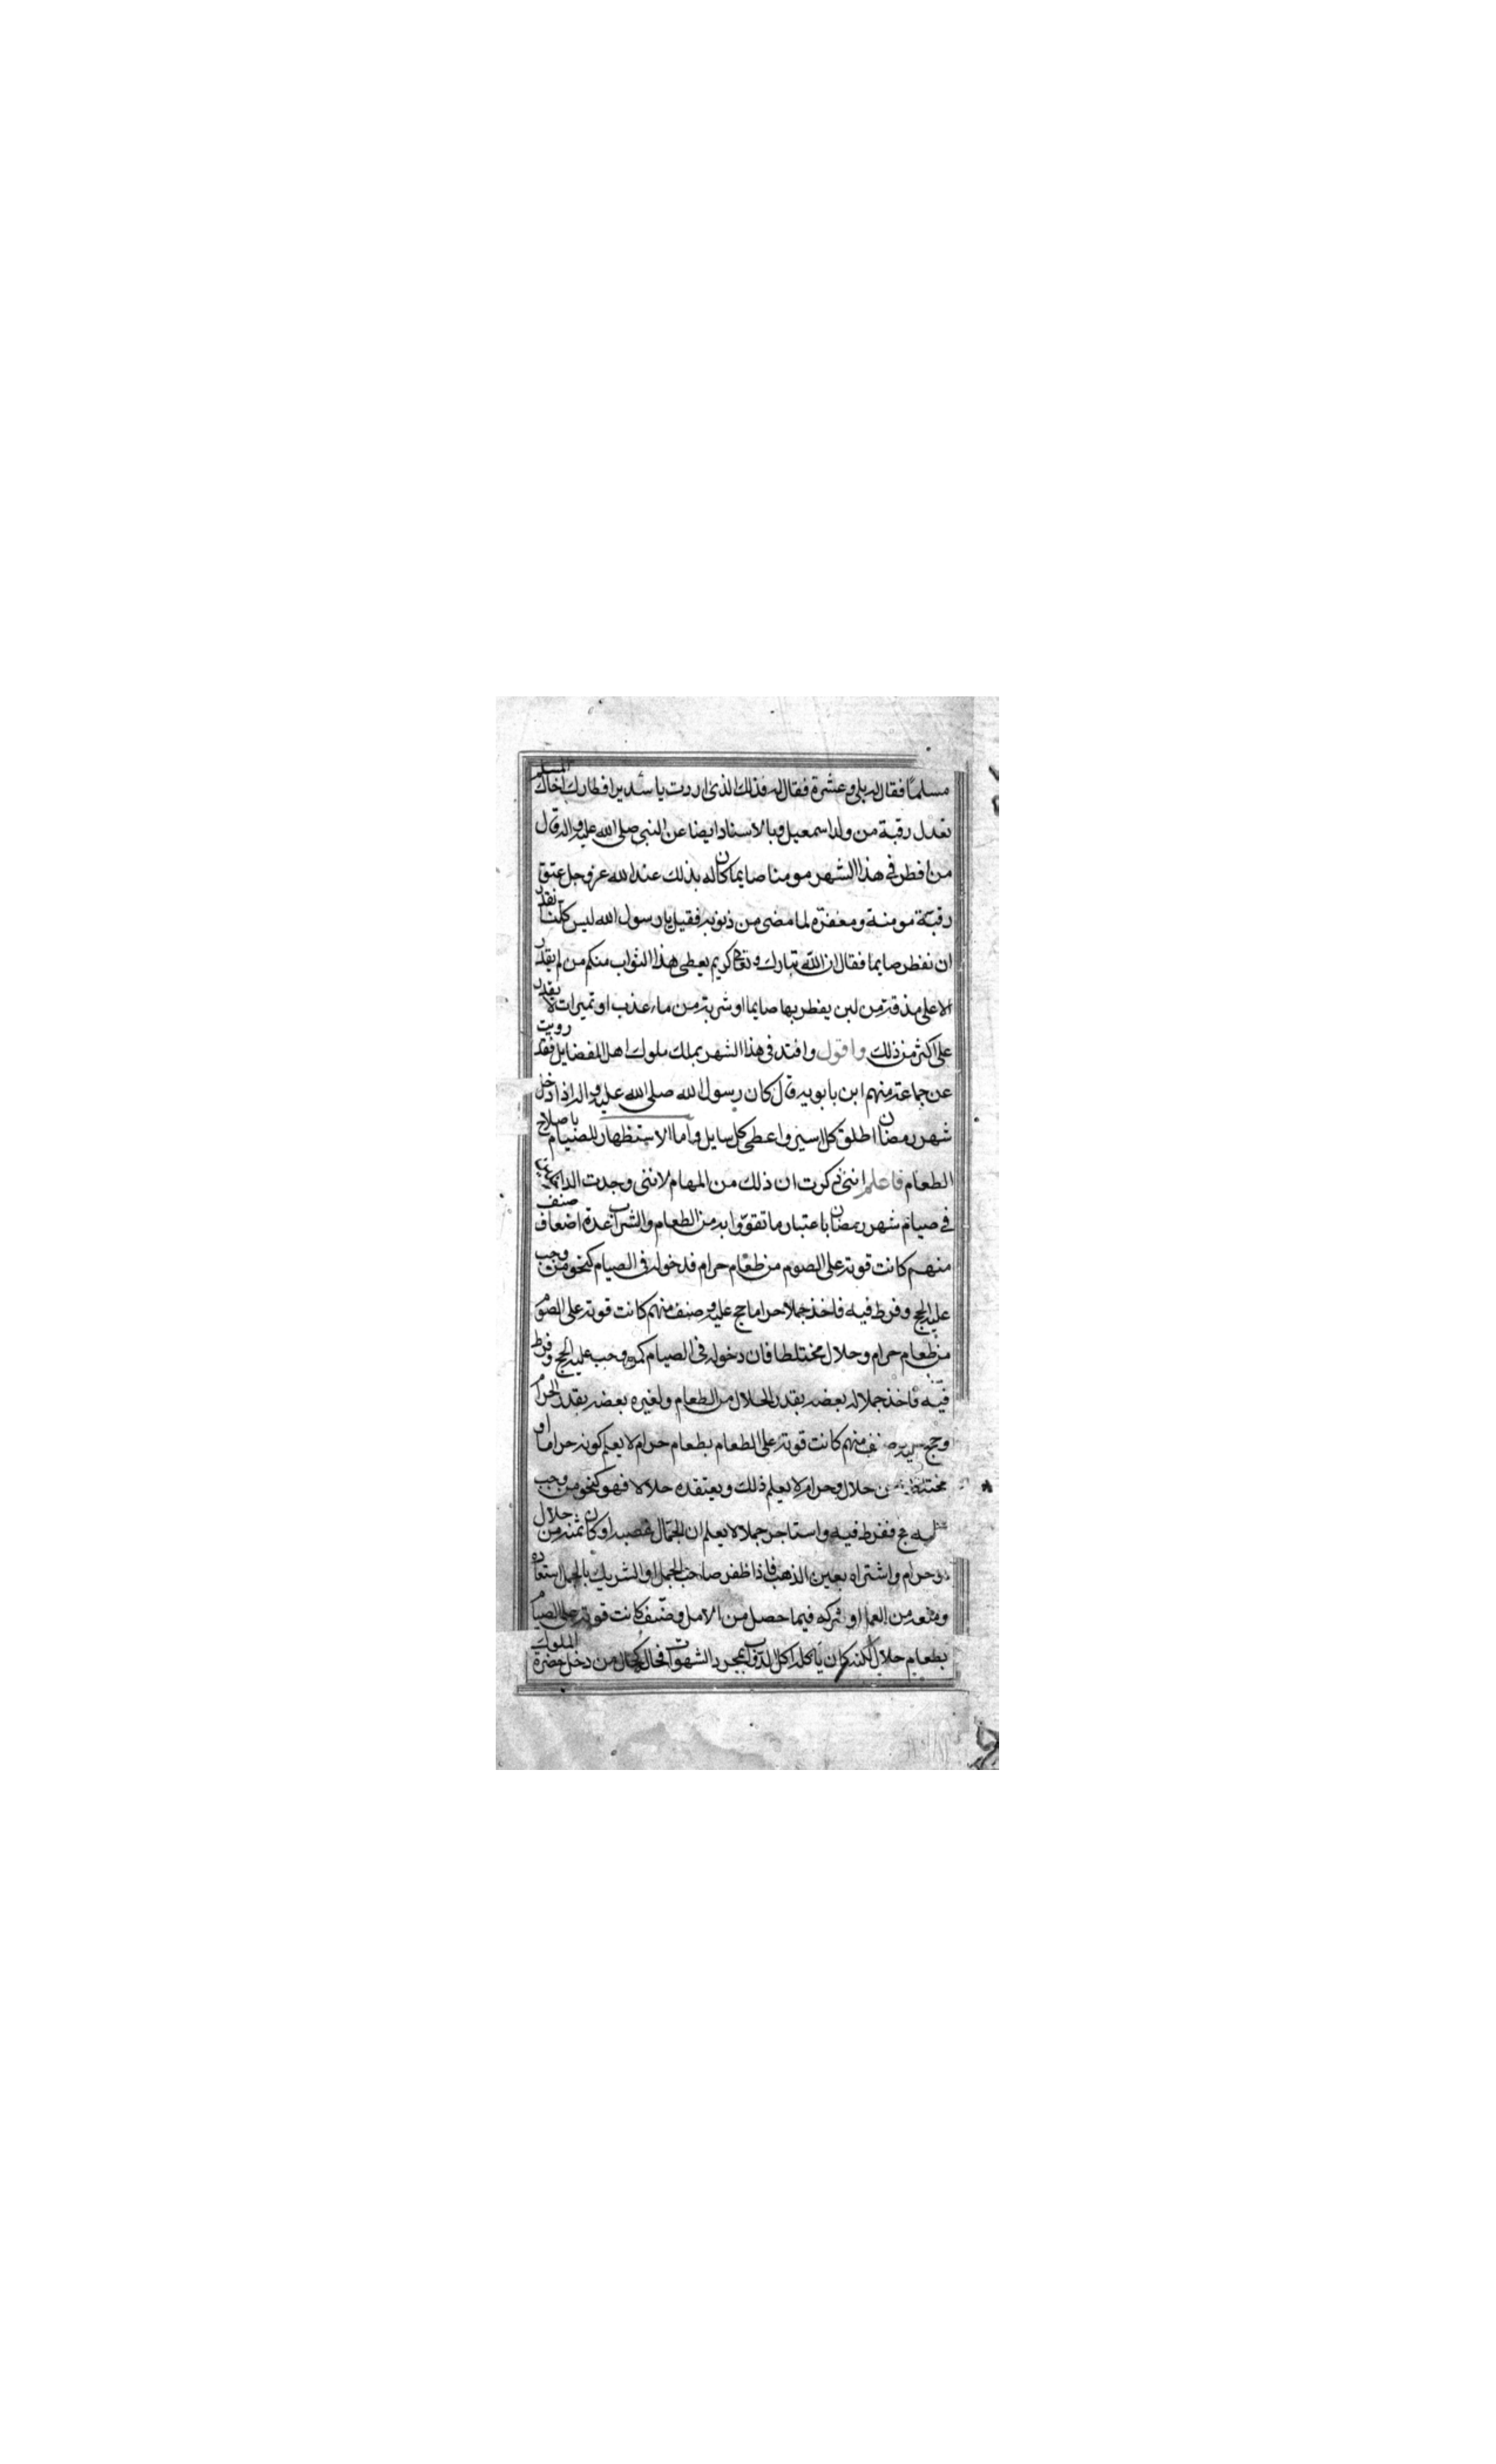 مسلمًا فقال له بلى وعشرة فقال له فذلك الذى اردت يا سدير افطارك اخاك المسلم
تعدل رقبة من ولد اسمعيل وبالاسناد ايضا عن النبى صلى الله عليه واله قال
من افطر فى هذا الشهر مومنا صايما كان له بذلك عند الله عز وجل عتق
رقبة مومنة ومغفرة لما مضى من ذنوبه فقيل يا رسول الله ليس كلنا نقدر
ان نفطر صايما فقال ان الله تبارك وتعالى كريم يعطى هذا الثواب منكم من لم يقدر
الا على مذقة من لبن يفطر بها صايما او شربة من ماء عذب او تميرات لا يقدر
على اكثر من ذلك واقول وافتد فى هذا الشهر بملك ملوك اهل الفضايل فقد رويت
عن جماعة منهم ابن بابويه قال كان رسول الله صلى الله عليه واله اذا دخل
شهر رمضان اطلق كل اسير واعطى كل سايل واما الاستظهار للصيام باصلاح
الطعام فاعلم اننى ذكرت ان ذلك من المهام لاننى وجدت
فى صيام شهر رمضان باعتبار ما تقووا به من الطعام والشراب عدة اضعاف صنف
منهم كانت قوته على الصوم من طعام حرام فدخوله فى الصيام كنحو من وجب
عليه الحج وفرط فيه فاخذ جملا حراما حج عليه وصنف منهم كانت قوته على الصوم
من طعام حرام وحلال مختلطا فان دخوله فى الصيام كمن وجب عليه الحج وفرط
فيه فاخذ جملا له بعضه بقدر الحلال من الطعام ولغيره بعضه بقدر الحرام
وحج عليه وصنف منهم كانت قوته على الطعام بطعام حرام لا يعلم كونه حراما او
مختلطا من حلال وحرام لا يعلم ذلك ويعتقده حلالا فهو كنحو من وجب
عليه حج ففرط فيه واستاجر جملا لا يعلم ان الجمال غصبه او كان ثمنه من حلال
وحرام واشتراه بعين الذهب فاذا ظفر صاحب الجمل او الشريك بالجمل استعاده
ومنعه من العمل او شركه فيما حصل من الامل وصنف كانت قوته على الصيام
بطعام حلال لكنه كان ياكله اكل الدواب بمجرد الشهوات فحاله كحال من دخل حضرة الملوك